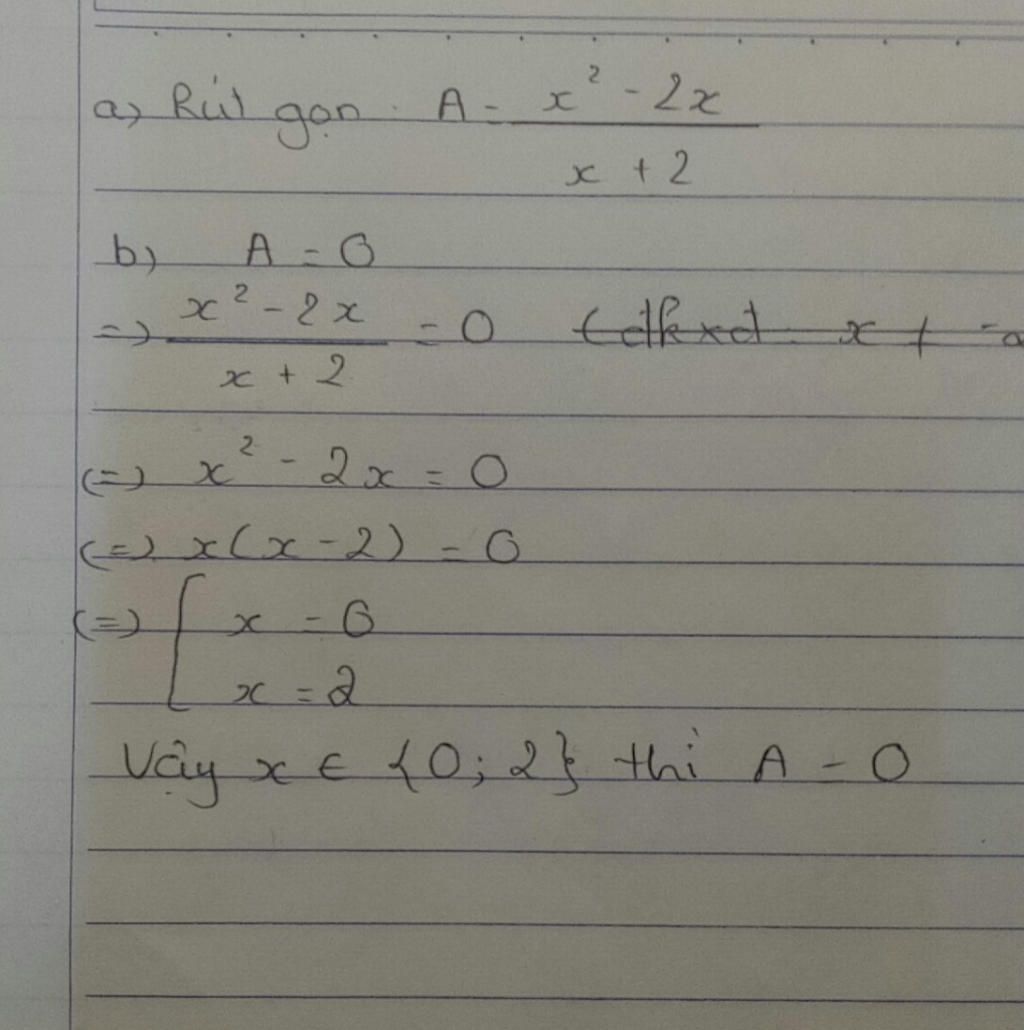 a) Rút gọn. A = (x² - 2x)/(x + 2)
b) A = 0
=> (x² - 2x)/(x + 2) = 0 (đkxđ x ≠ -2
(=) x² - 2x = 0
(=) x(x - 2) = 0
(=) [ x = 0
x = 2
Vậy x ∈ {0; 2} thì A = 0